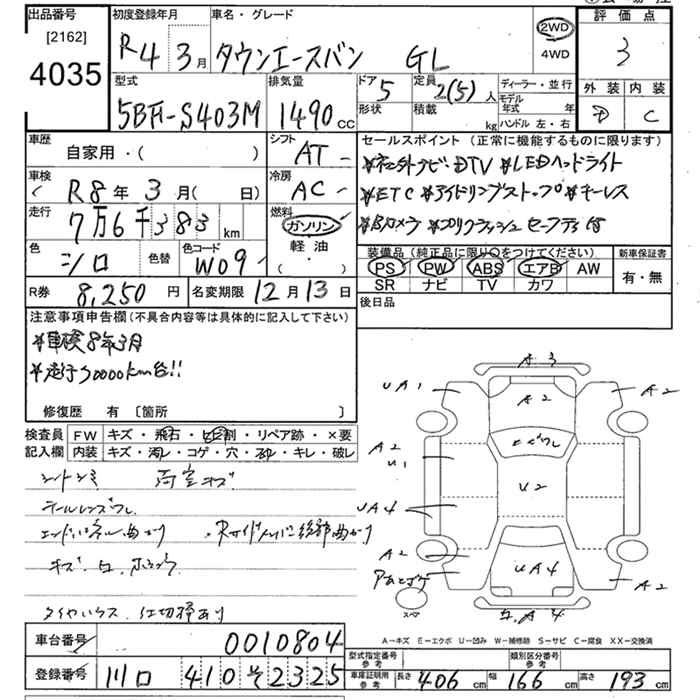 出品番号
[2162]
4035
初度登録年月
R4 3月
車名・グレード
タウンエースバン GL
2WD
4WD
評価点
3
外装 内装
D C
型式
5BF-S403M
排気量
1490 cc
ドア
5
形状
定員
2(5) 人
積載
kg
ディーラー・並行
モデル年式 年
ハンドル 左・右
車歴
自家用・( )
シフト
AT
車検
R8年 3月( 日)
冷房
AC
走行
7万6千383 km
燃料
ガソリン
軽油
( ・ )
色
シロ
色替
色コード
W09
R券
8,250 円
名変期限
12月13日
セールスポイント (正常に機能するものに限ります)
*社外ナビ・DTV *LEDヘッドライト
*ETC *アイドリングストップ *キーレス
*Bカメラ *プリクラッシュセーフティ
装備品(純正品に限り○をつけてください)
PS PW ABS エアB AW
SR ナビ TV カワ
新車保証書
有・無
後日品
注意事項申告欄(不具合内容等は具体的に記入して下さい)
*車検8年3月
*走行70000km台!!
修復歴 有 〔箇所 〕
検査員記入欄
FW キズ・飛石・ヒビ割・リペア跡・×要
内装 キズ・汚レ・コゲ・穴・スレ・キレ・破レ
シートシミ 荷室キズ
テールレンズワレ
タイヤハウス 仕切棒あり
A 3
UA1
A2
A2
A2
U1
U2
UA4
A2
UA4
A2
スペア
A 4
A-キズ E-エクボ U-凹み W-補修跡 S-サビ C-腐食 XX-交換済
車台番号
0010804
登録番号
川口 410 そ 2325
型式指定番号 参考
類別区分番号 参考
車庫証明用 参考
長さ 406 cm 幅 166 cm 高さ 193 cm